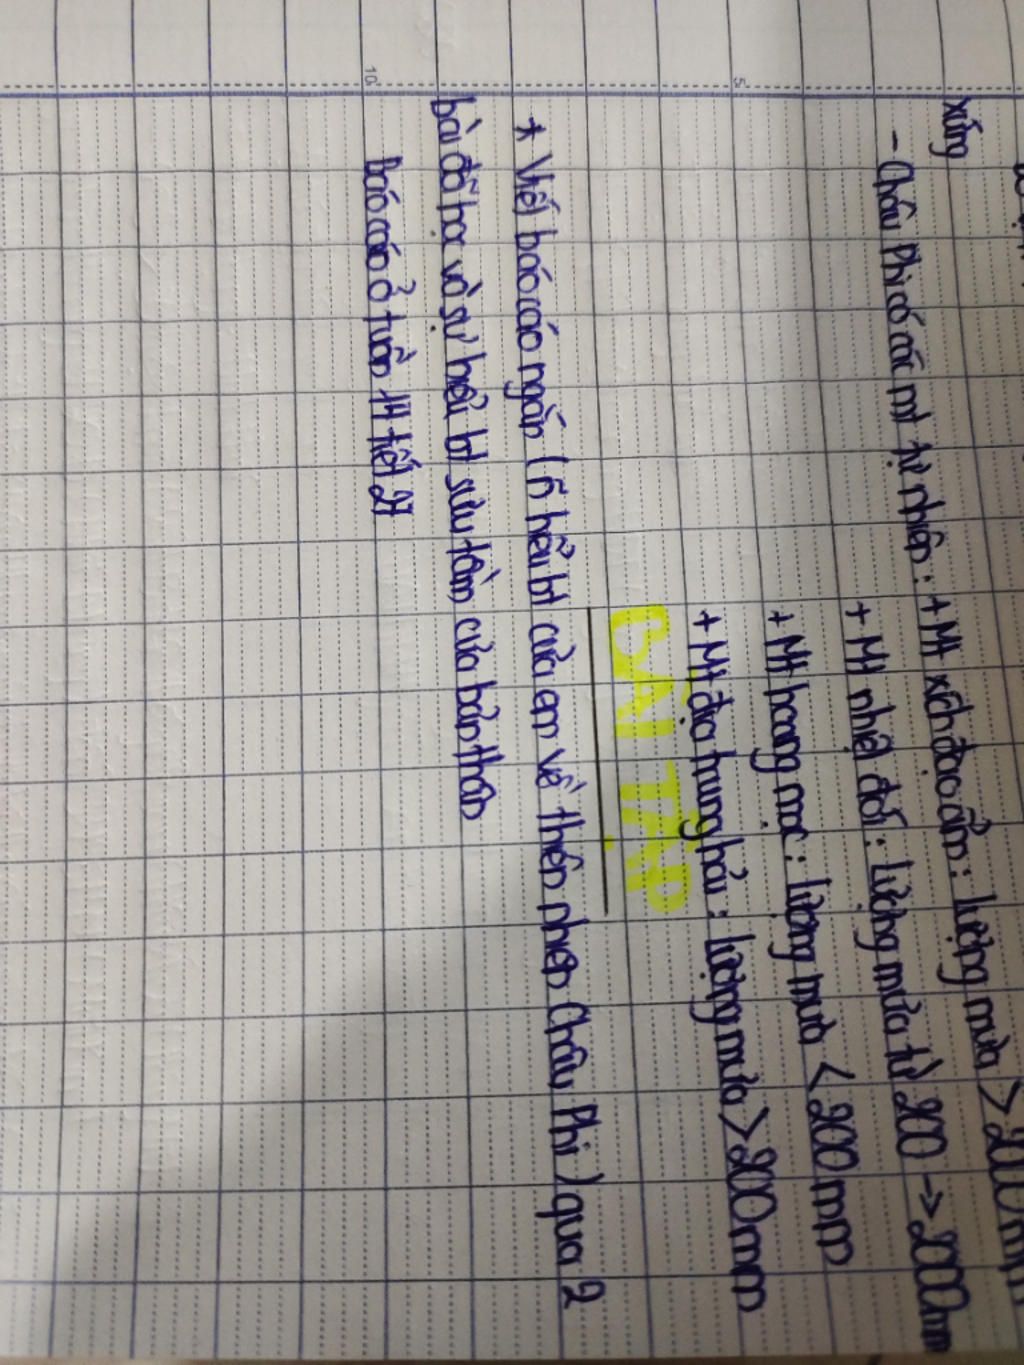 xứng
- Châu Phi có các mt tự nhiên : + Mt xích đạo ẩm : lượng mưa > 2000mm
+ Mt nhiệt đới : lượng mưa từ 200 -> 2000mm
+ Mt hoang mạc : lượng mưa < 200mm
+ Mt địa trung hải : lượng mưa > 200mm
BÀI TẬP
* Viết báo cáo ngắn ( hiểu bt của em về thiên nhiên Châu Phi ) qua 2
bài đã học và sự hiểu bt sưu tầm của bản thân
Báo cáo ở tuần 14 tiết 27
5
10